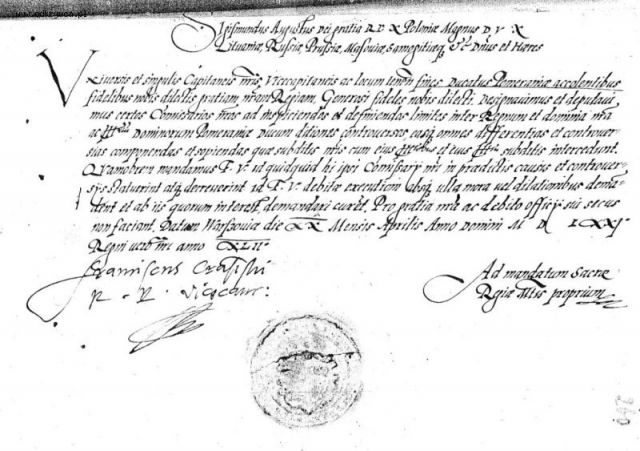 Sigismundus Augustus Dei gratia R D X Poloniæ Magnus D V X
Lituaniæ, Russiæ Prussiæ, Masouiæ, Samogitiæq, Dnus et Hæres
Vniuersis et singulis Capitaneis nris, Vicecapitaneis ac locum fines Ducatus Pomeraniæ accolentibus
fidelibus nobis dilectis gratiam nram Regiam. Generosi fideles nobis dilecti. Designauimus et deputaui
mus certos Comisarios nros ad inspiciendos et definiendos limites inter Regnum et dominia nra
ac Dominorum Pomeraniæ Ducum ditiones controuersas easq omnes differentias et controuer
sias componendas et sopiendas quæ subditis nris cum eius et eius subditis intercedunt.
Quamobrem mandamus F. V. ut quidquid hi ipsi Comissarij nri in prædictis causis et controuer
sijs statuerint atq decreuerint id F. V. debitæ executioni absq ulla mora vel dilationibus deman
dent et ab iis quorum interest, demandari curent, Pro gratia nra ac debito officij sui secus
non faciant. Datum Warssouiæ die XX Mensis Aprilis Anno Domini M D LXXI
Regni uero nri anno XLII
Franciscus Crasiski
R. P. Vicecanc:
Ad mandatum Sacræ
Regiæ Mtis proprium
360